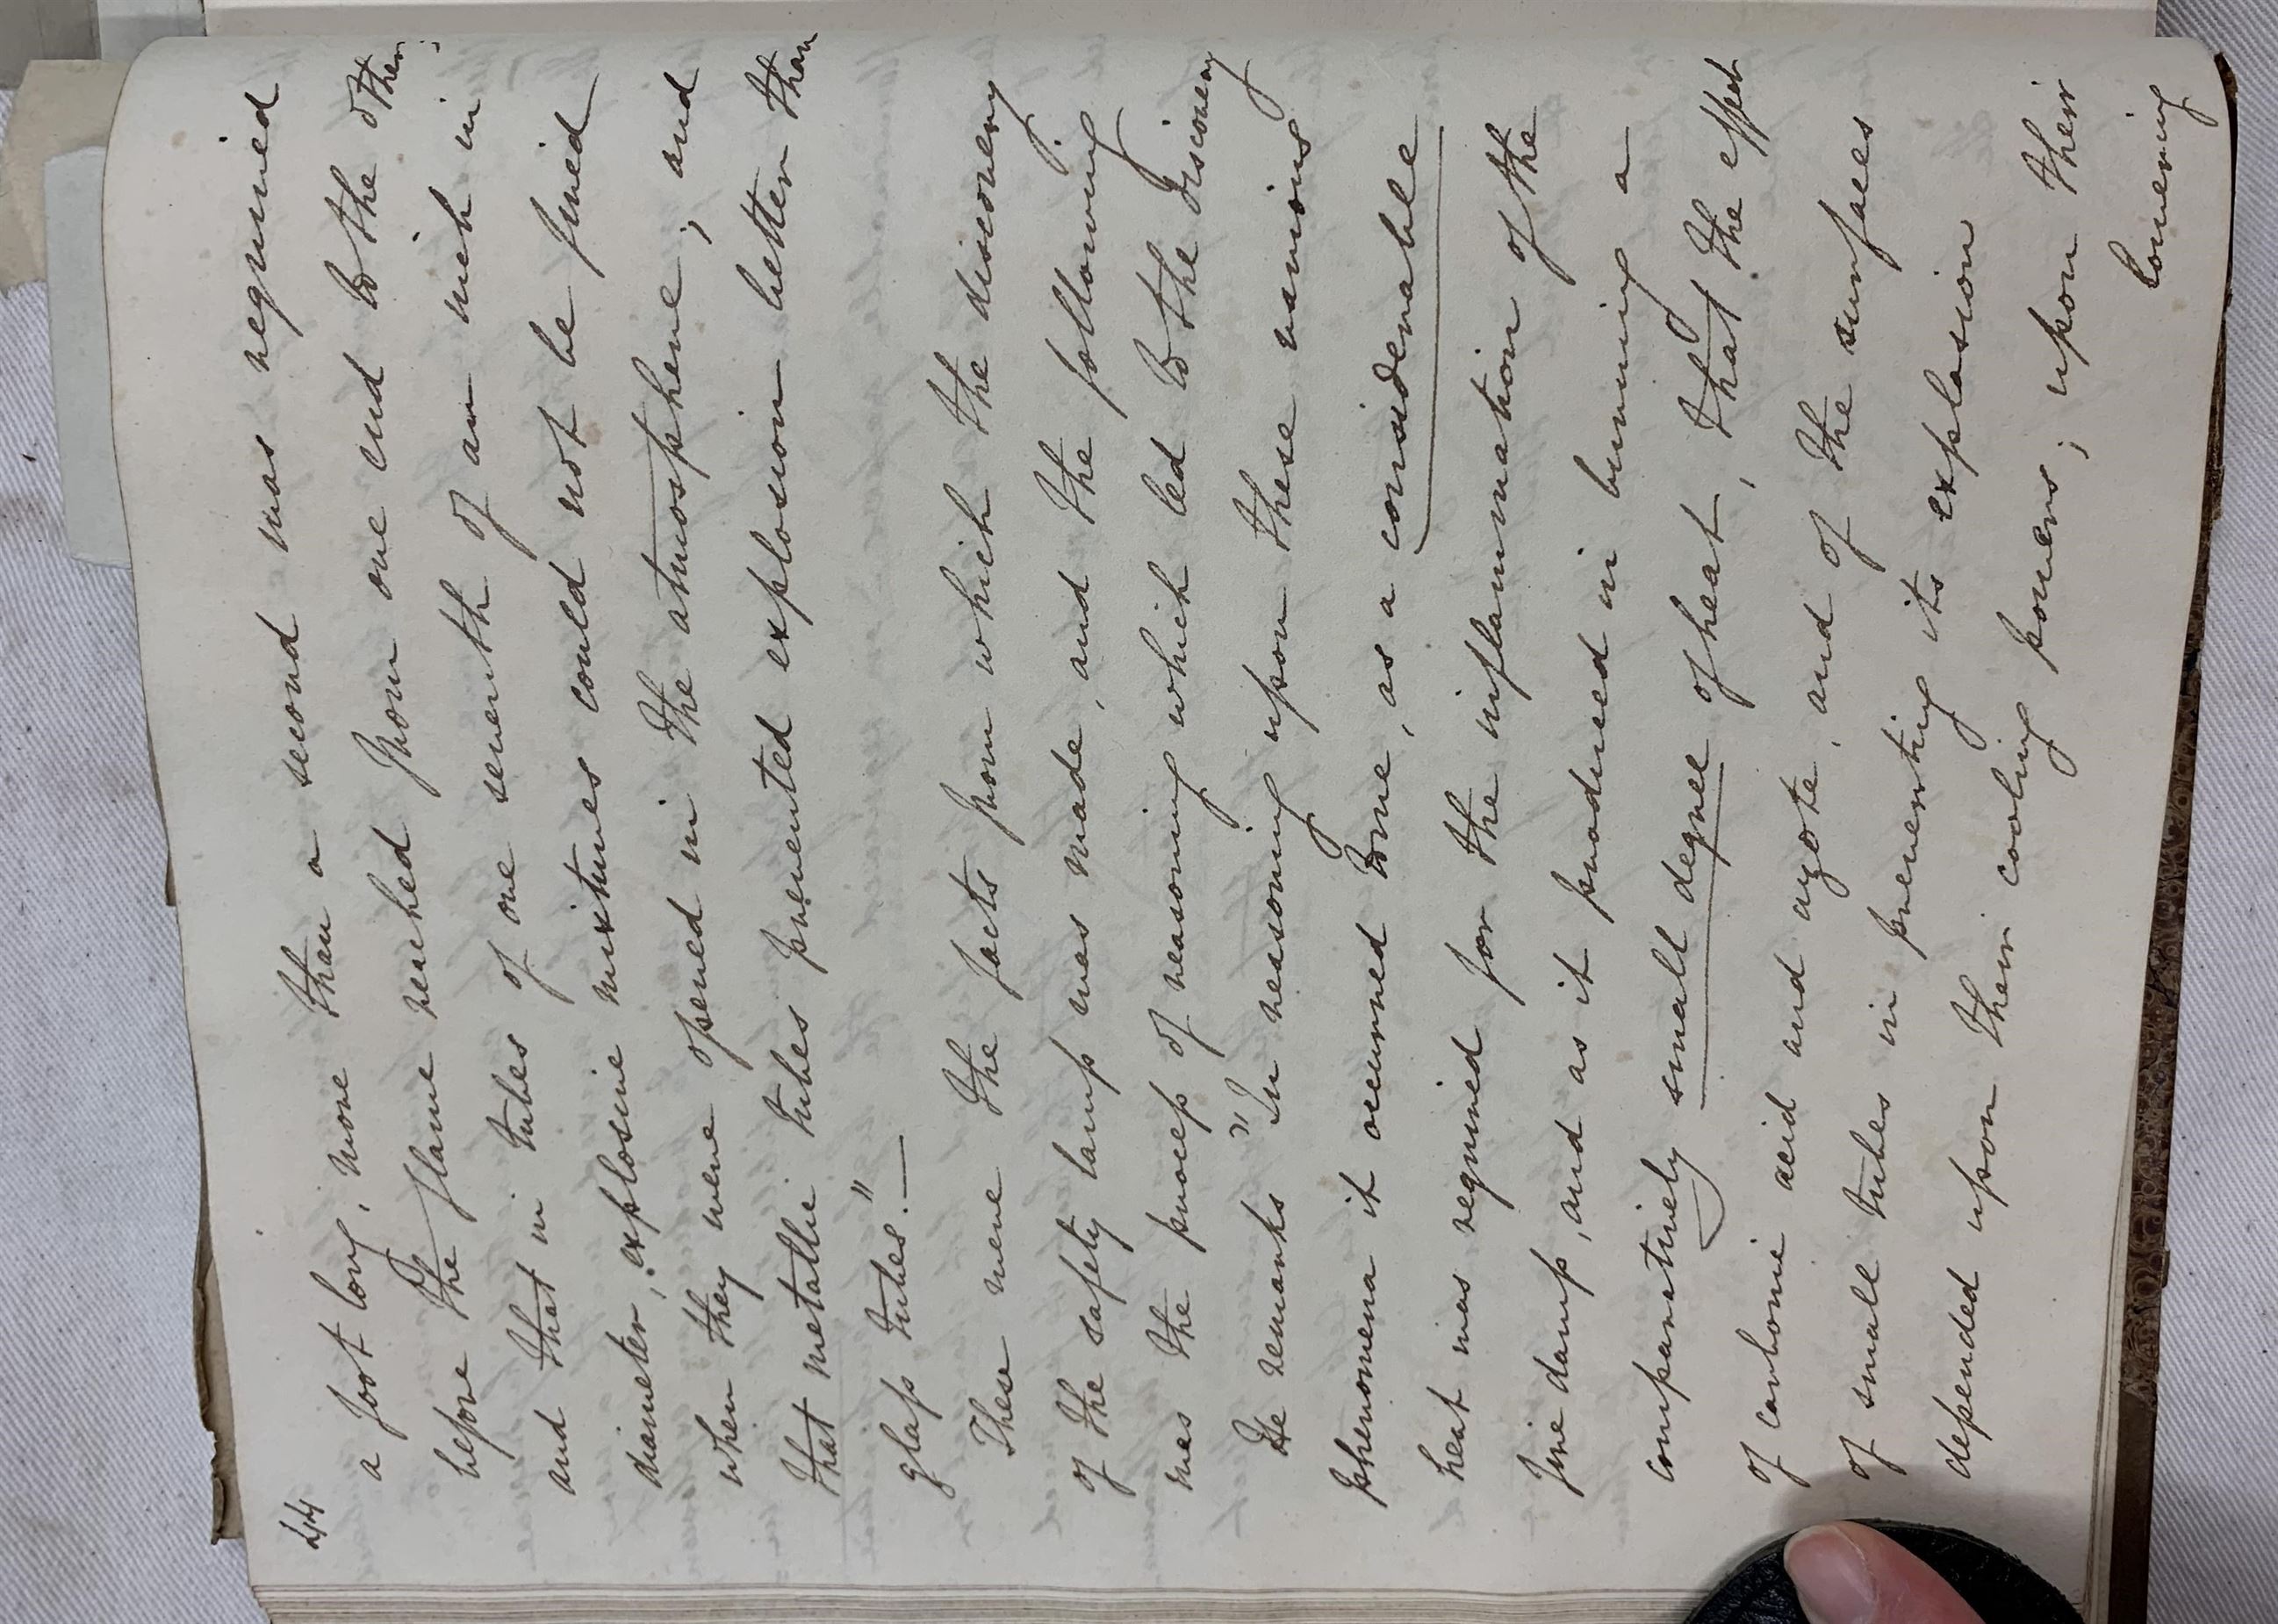 44
a foot long, more than a second was required
before the flame reached from one end to the other;
and that in tubes of one seventh of an inch in
diameter, explosive mixtures could not be fired
when they were opened in the atmosphere; and
that metallic tubes prevented explosion better than
glass tubes."—
These were the facts from which the discovery
of the safety lamp was made, and the following
was the process of reasoning which led to the discovery.
He remarks "In reasoning upon these various
phenomena it occurred to me, as a considerable
heat was required for the inflammation of the
fire damp, and as it produced in burning a
comparatively small degree of heat, that the effect
of carbonic acid and azote, and of the surfaces
of small tubes in preventing its explosion
depended upon their cooling powers; upon their
lowering